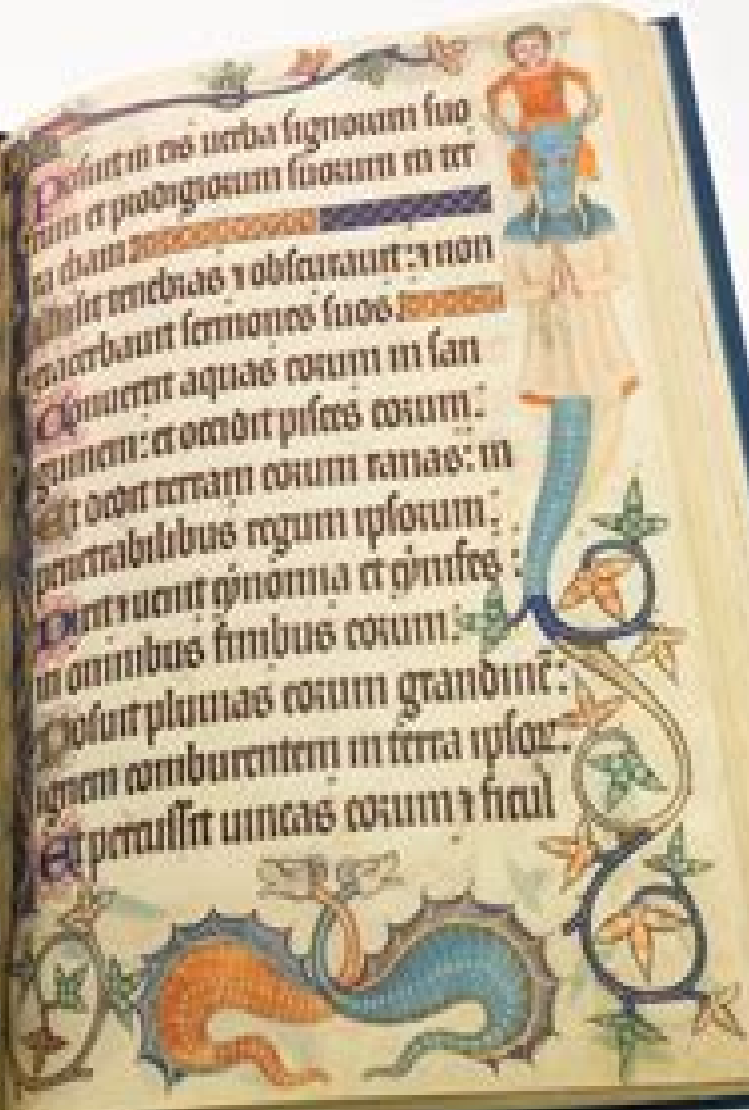 Posuit in eis uerba signorum suo
rum et prodigiorum suorum in ter
ra cham
Misit tenebras ⁊ obscurauit: ⁊ non
exacerbauit sermones suos.
Conuertit aquas eorum in san
guinem: et occidit pisces eorum:
Et dedit terram eorum ranas: in
penetrabilibus regum ipsorum:
Dixit ⁊ uenit cynomia et cynifes :
in omnibus finibus eorum:
Posuit pluuias eorum grandinē:
ignem comburentem in terra ipsoꝝ:
Et percussit uineas eorum ⁊ ficul